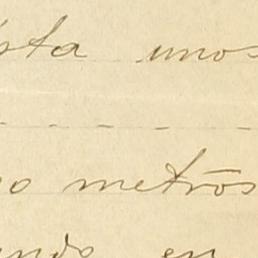 sta unos
o metros
ando en